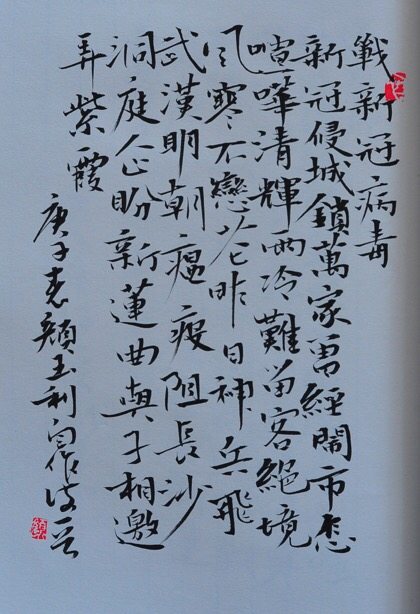 戰新冠病毒
新冠侵城鎖萬家曾經鬧市
喧嘩清輝雨冷難留客絕境
風寒不戀花昨日神兵飛
武漢明朝瘟疫阻長沙
洞庭企盼新蓮曲與子相邀
弄紫霞
庚子春顏玉利自作诗